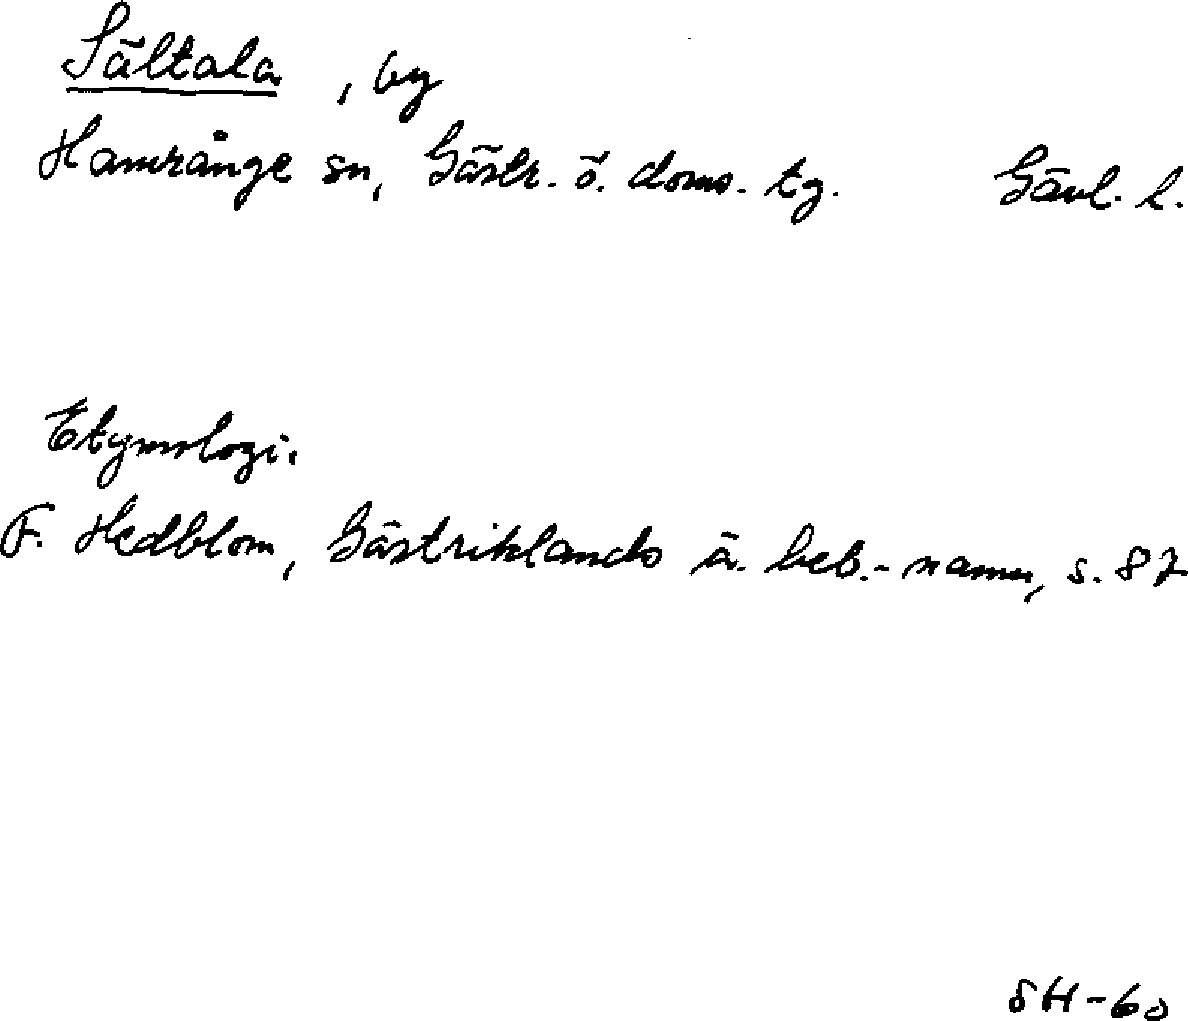 Sältala, by
Hamrånge sn, Gästr. ö. doms. tg. Gävl. l.
Etymologi.
F. Hedblom, Gästriklands ä. beb.-namn, s. 87
SH-60